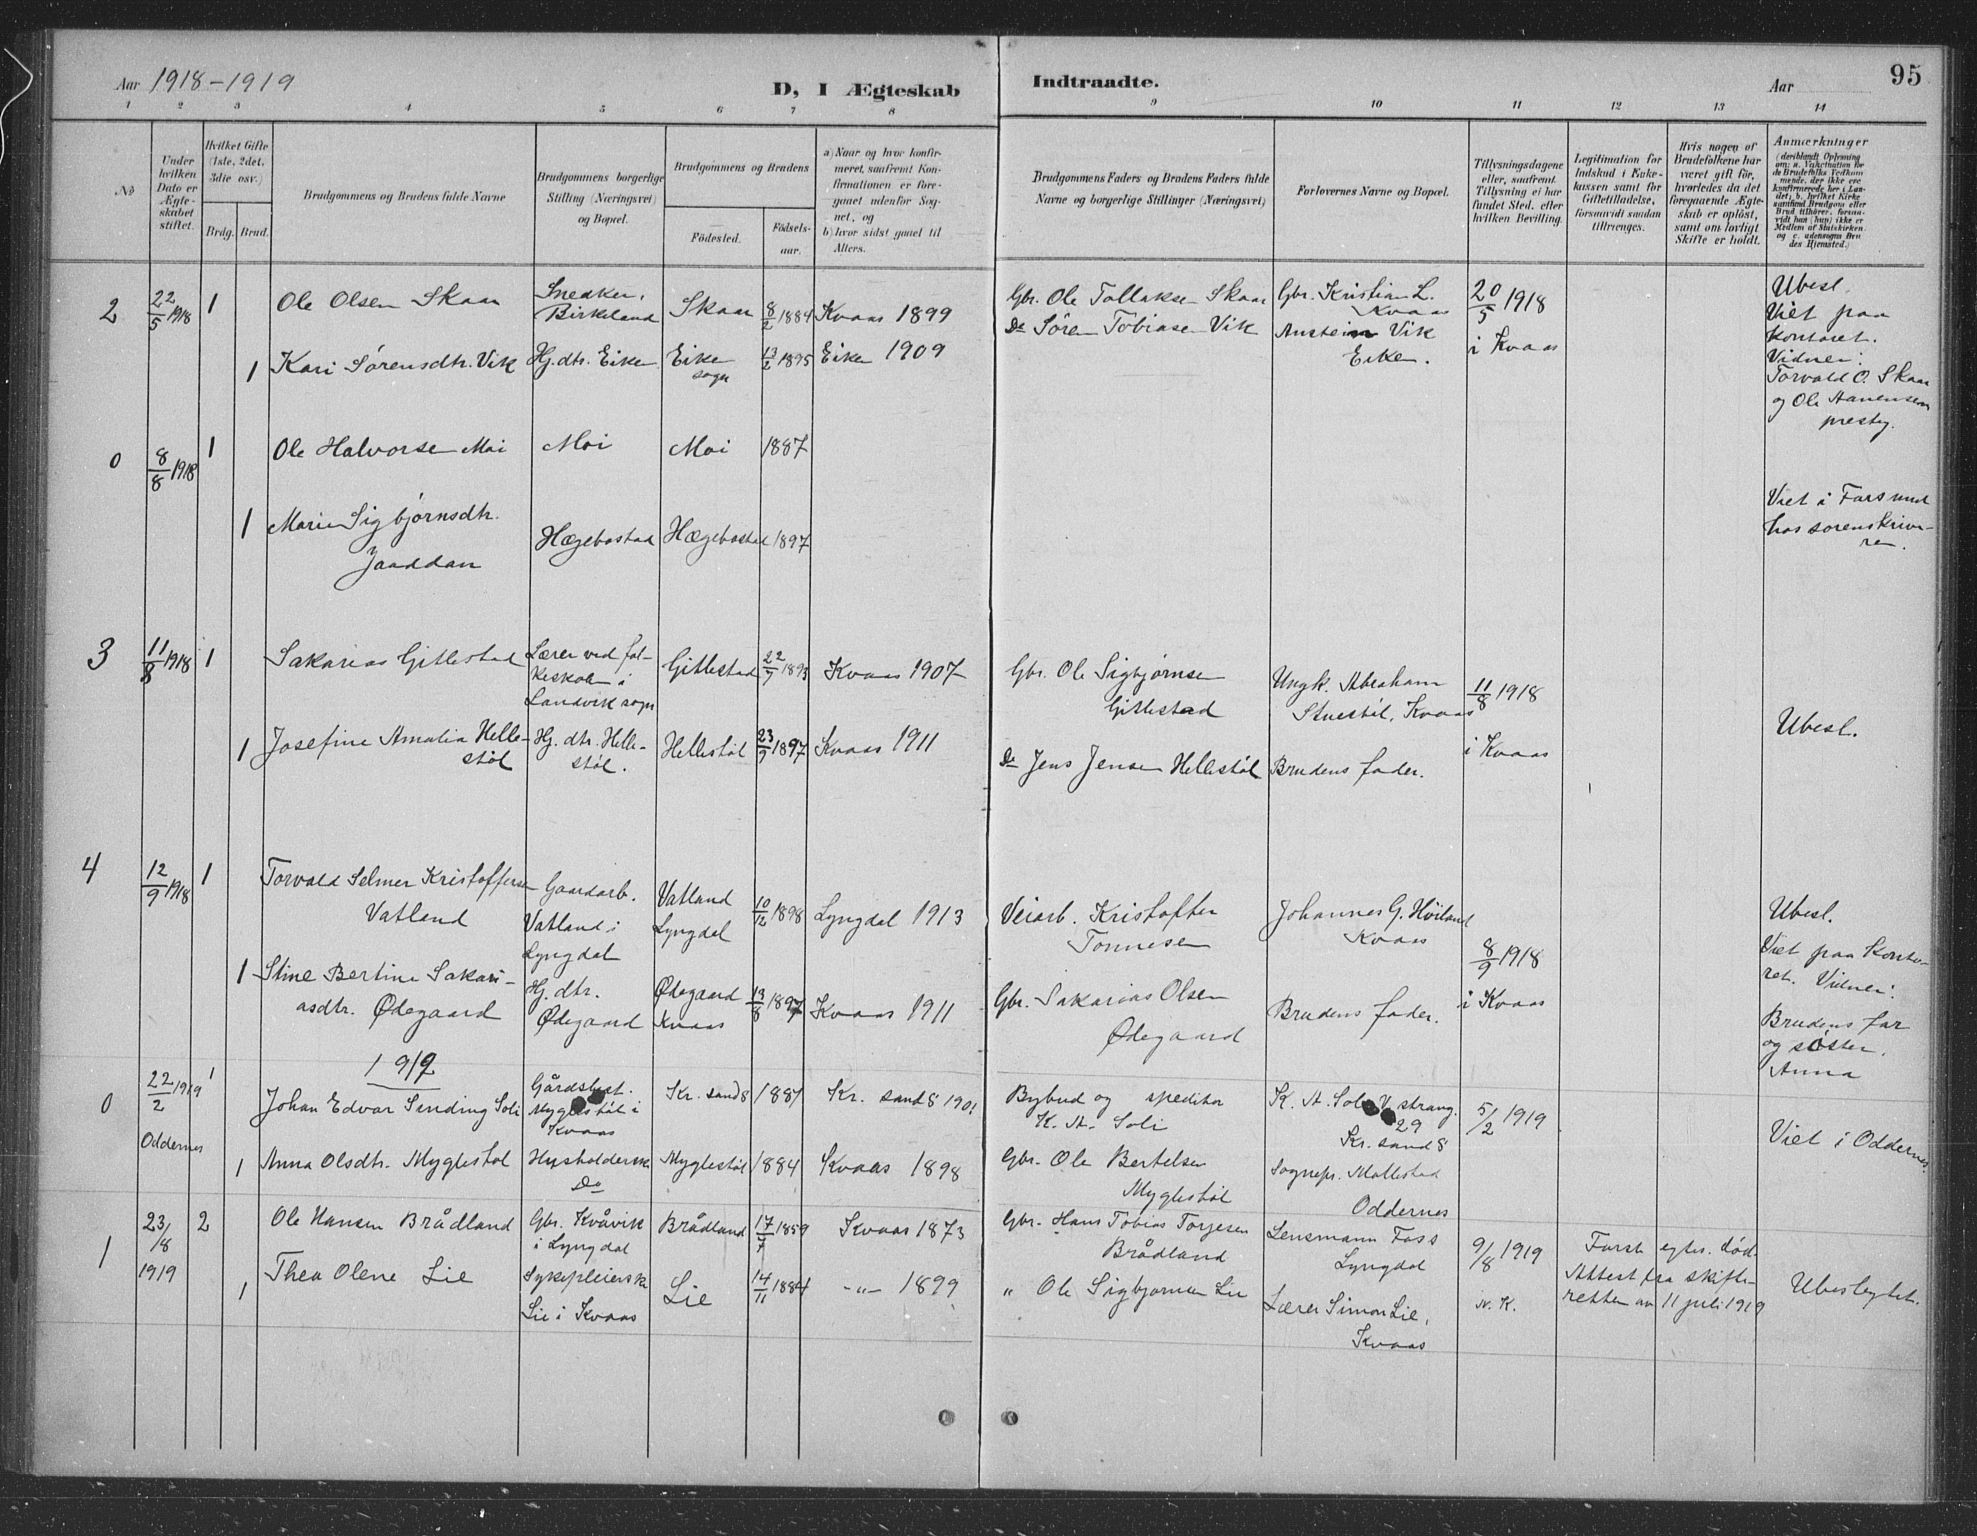 Aar 1918-1919
D, I Ægteskab
Indtraadte.
Aar
95
1 2 3 4 5 6 7 8 9 10 11 12 13 14
No
Under hvilken Dato er Ægteskabet stiftet.
Hvilket Gifte (1ste, 2det, 3die osv.)
Brdg. Brud.
Brudgommens og Brudens fulde Navne
Brudgommens borgerlige Stilling (Næringsvei) og Bopæl.
Brudgommens og Brudens
Fødested.
Fødsels-aar.
a) Naar og hvor konfirmeret, saafremt Konfirmationen er foregaaet udenfor Sognet, og
b) hvor sidst gaaet til Alters.
Brudgommens Faders og Brudens Faders fulde Navne og borgerlige Stillinger (Næringsvei)
Forlovernes Navne og Bopæl.
Tillysningsdagene eller, saafremt Tillysning ei har fundet Sted, efter hvilken Bevilling.
Legitimation for Indskud i Enkekassen samt for Giftetilladelse, forsaavidt saadan tiltrænges.
Hvis nogen af Brudefolkene har været gift før, hvorledes da det foregaaende Ægteskab er opløst, samt om lovligt Skifte er holdt.
Anmærkninger
2 22/5 1918 1 Ole Olsen Skaar Snedker, Birkeland Skaar 8/2 1884 Kvaas 1899 Gbr. Ole Tollaksen Skaar Gbr. Kristian L. Kvaas 20/5 1918 i Kvaas Ubesl.
1 Kari Sørensdtr. Vik Hj. dtr. Eiken Eiken sogn 13/2 1895 Eiken 1909 Do Søren Tobiasen Vik Anstein Vik Eiken. Viet paa Kontoret. Vidner: Torvald O. Skaar og Ole Aanensen presteg.
0 8/8 1918 1 Ole Halvorsen Moi Moi Moi 1887
1 Marie Sigbjørnsdtr. Jaaddan Hægebostad Hægebostad 1897 Viet i Farsund hos sorenskriveren.
3 11/8 1918 1 Sakarias Gitlestad Lærer ved folkeskolen i Landvik sogn Gitlestad 22/7 1893 Kvaas 1907 Gbr. Ole Sigbjørnsen Gitlestad Ungk. Abraham Stuestøl, Kvaas 11/8 1918 i Kvaas
1 Josefine Amalia Hellestøl Hj. dtr. Hellestøl. Hellestøl 23/9 1897 Kvaas 1911 Do Jens Jensen Hellestøl Brudens fader. Ubesl.
4 12/9 1918 1 Torvald Selmer Kristoffersen Vatland Gaardarb. Vatland i Lyngdal Vatland Lyngdal 10/12 1898 Lyngdal 1913 Veiarb. Kristoffer Tønnesen Johannes G. Høiland Kvaas 8/9 1918 i Kvaas Ubesl.
1 Stine Bertine Sakariasdtr. Ødegaard Hj. dtr. Ødegaard Ødegaard Kvaas 13/8 1897 Kvaas 1911 Gbr. Sakarias Olsen Ødegaard Brudens fader. Viet paa Kontoret. Vidner: Brudens far og søster, Anna
1919
0 22/2 1919 Oddernes 1 Johan Edvar Sinding Soli Gårdsbest. Myglestøl i Kvaas Kr.sand S 1887 Kr.sand S 1901 Bybud og speditør K. A. Soli K. A. Soli V. strang. 29 Kr.sand S 5/2 1919
1 Anna Olsdtr. Myglestøl Husholderske Do Myglestøl 1884 Kvaas 1898 Gbr. Ole Bertelsen Myglestøl Sognepr. Mollestad Oddernes Viet i Oddernes.
1 23/8 1919 2 Ole Hansen Brådland Gbr. Kvåvik i Lyngdal Brådland 17/7 1859 Kvaas 1873 Gbr. Hans Tobias Torjesen Brådland Lensmann Foss Lyngdal 9/8 1919 Første egtes. død. Attest fra skifteretten av 11 juli 1919
1 Thea Olene Lie Sykepleierske Lie i Kvaas Lie 14/11 1884 -"- 1899 " Ole Sigbjørnsen Lie Lærer Simon Lie, Kvaas N. K. Ubeslegtet.